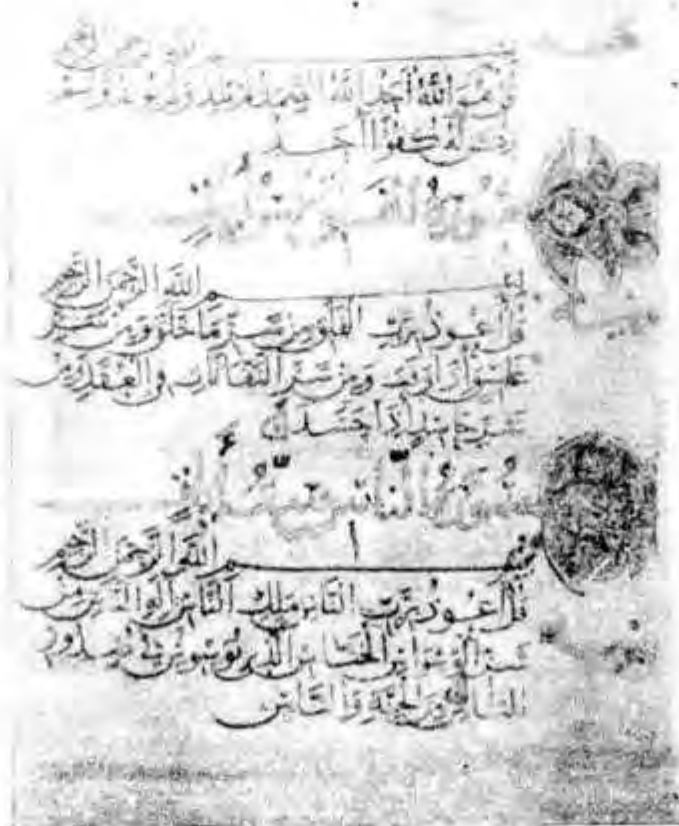 بسم الله الرحمن الرحيم
قل هو الله أحد الله الصمد لم يلد ولم يولد ولم
يكن له كفوا أحد
سورة الفلق
بسم الله الرحمن الرحيم
قل أعوذ برب الفلق من شر ما خلق ومن شر
غاسق إذا وقب ومن شر النفاثات في العقد ومن
شر حاسد إذا حسد
سورة الناس
بسم الله الرحمن الرحيم
قل أعوذ برب الناس ملك الناس إله الناس من
شر الوسواس الخناس الذي يوسوس في صدور
الناس من الجنة والناس